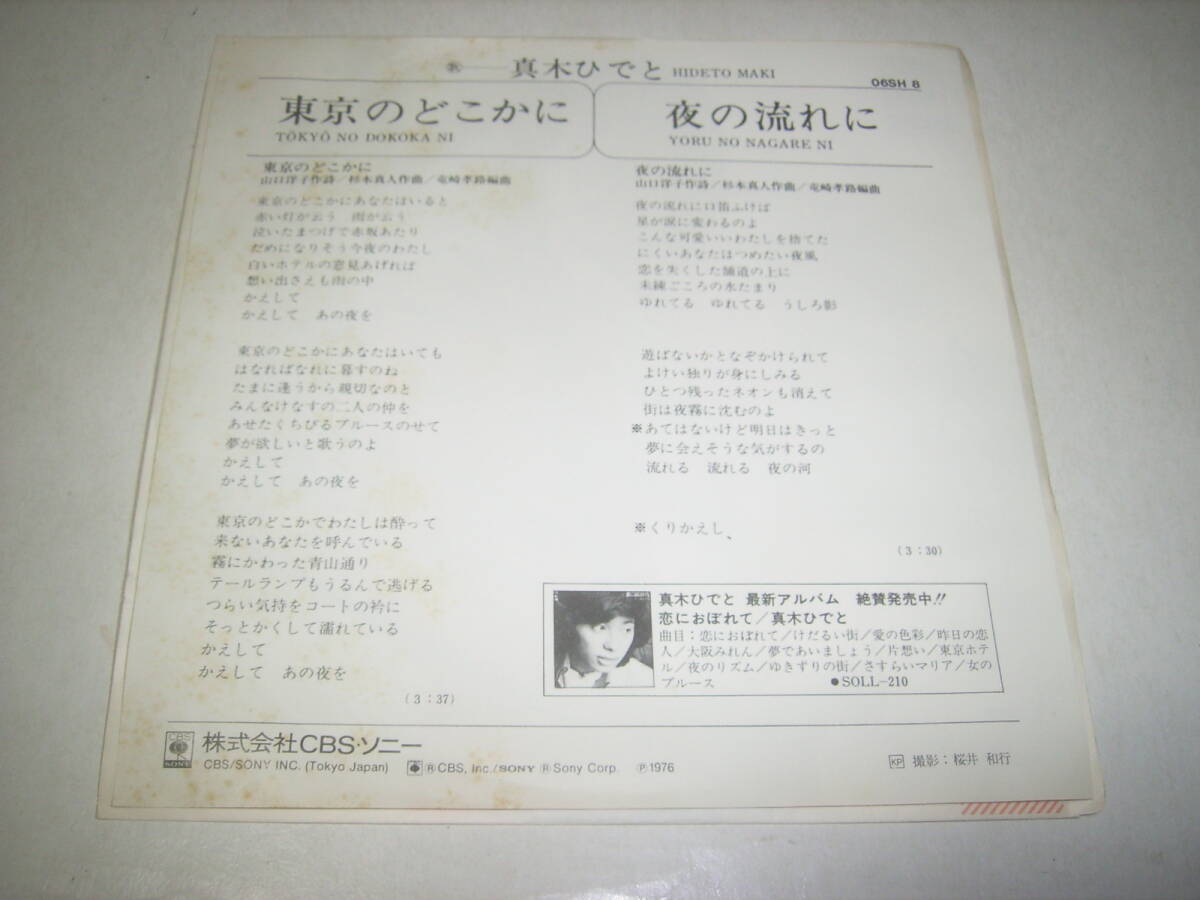 歌——真木ひでと HIDETO MAKI
06SH 8
東京のどこかに
TŌKYŌ NO DOKOKA NI
夜の流れに
YORU NO NAGARE NI
東京のどこかに
山口洋子作詩/杉本真人作曲/竜崎孝路編曲
東京のどこかにあなたはいると
赤い灯が云う　雨が云う
泣いたまつげで赤坂あたり
だめになりそう今夜のわたし
白いホテルの窓見あげれば
想い出さえも雨の中
かえして
かえして　あの夜を
東京のどこかにあなたはいても
はなればなれに暮すのね
たまに逢うから親切なのと
みんなけなすの二人の仲を
あせたくちびるブルースのせて
夢が欲しいと歌うのよ
かえして
かえして　あの夜を
東京のどこかでわたしは酔って
来ないあなたを呼んでいる
霧にかわった青山通り
テールランプもうるんで逃げる
つらい気持をコートの衿に
そっとかくして濡れている
かえして
かえして　あの夜を
(3:37)
夜の流れに
山口洋子作詩/杉本真人作曲/竜崎孝路編曲
夜の流れに口笛ふけば
星が涙に変わるのよ
こんな可愛いいわたしを捨てた
にくいあなたはつめたい夜風
恋を失くした舗道の上に
未練ごころの水たまり
ゆれてる　ゆれてる　うしろ影
遊ばないかとなぞかけられて
よけい独りが身にしみる
ひとつ残ったネオンも消えて
街は夜霧に沈むのよ
※あてはないけど明日はきっと
夢に会えそうな気がするの
流れる　流れる　夜の河
※くりかえし、
(3:30)
真木ひでと 最新アルバム　絶賛発売中!!
恋におぼれて/真木ひでと
曲目：恋におぼれて/けだるい街/愛の色彩/昨日の恋
人/大阪みれん/夢であいましょう/片想い/東京ホテ
ル/夜のリズム/ゆきずりの街/さすらいマリア/女の
ブルース　●SOLL-210
CBS SONY 株式会社CBS・ソニー
CBS/SONY INC. (Tokyo Japan) ⓇCBS, Inc./SONY Ⓡ Sony Corp. Ⓟ1976
KP 撮影：桜井 和行